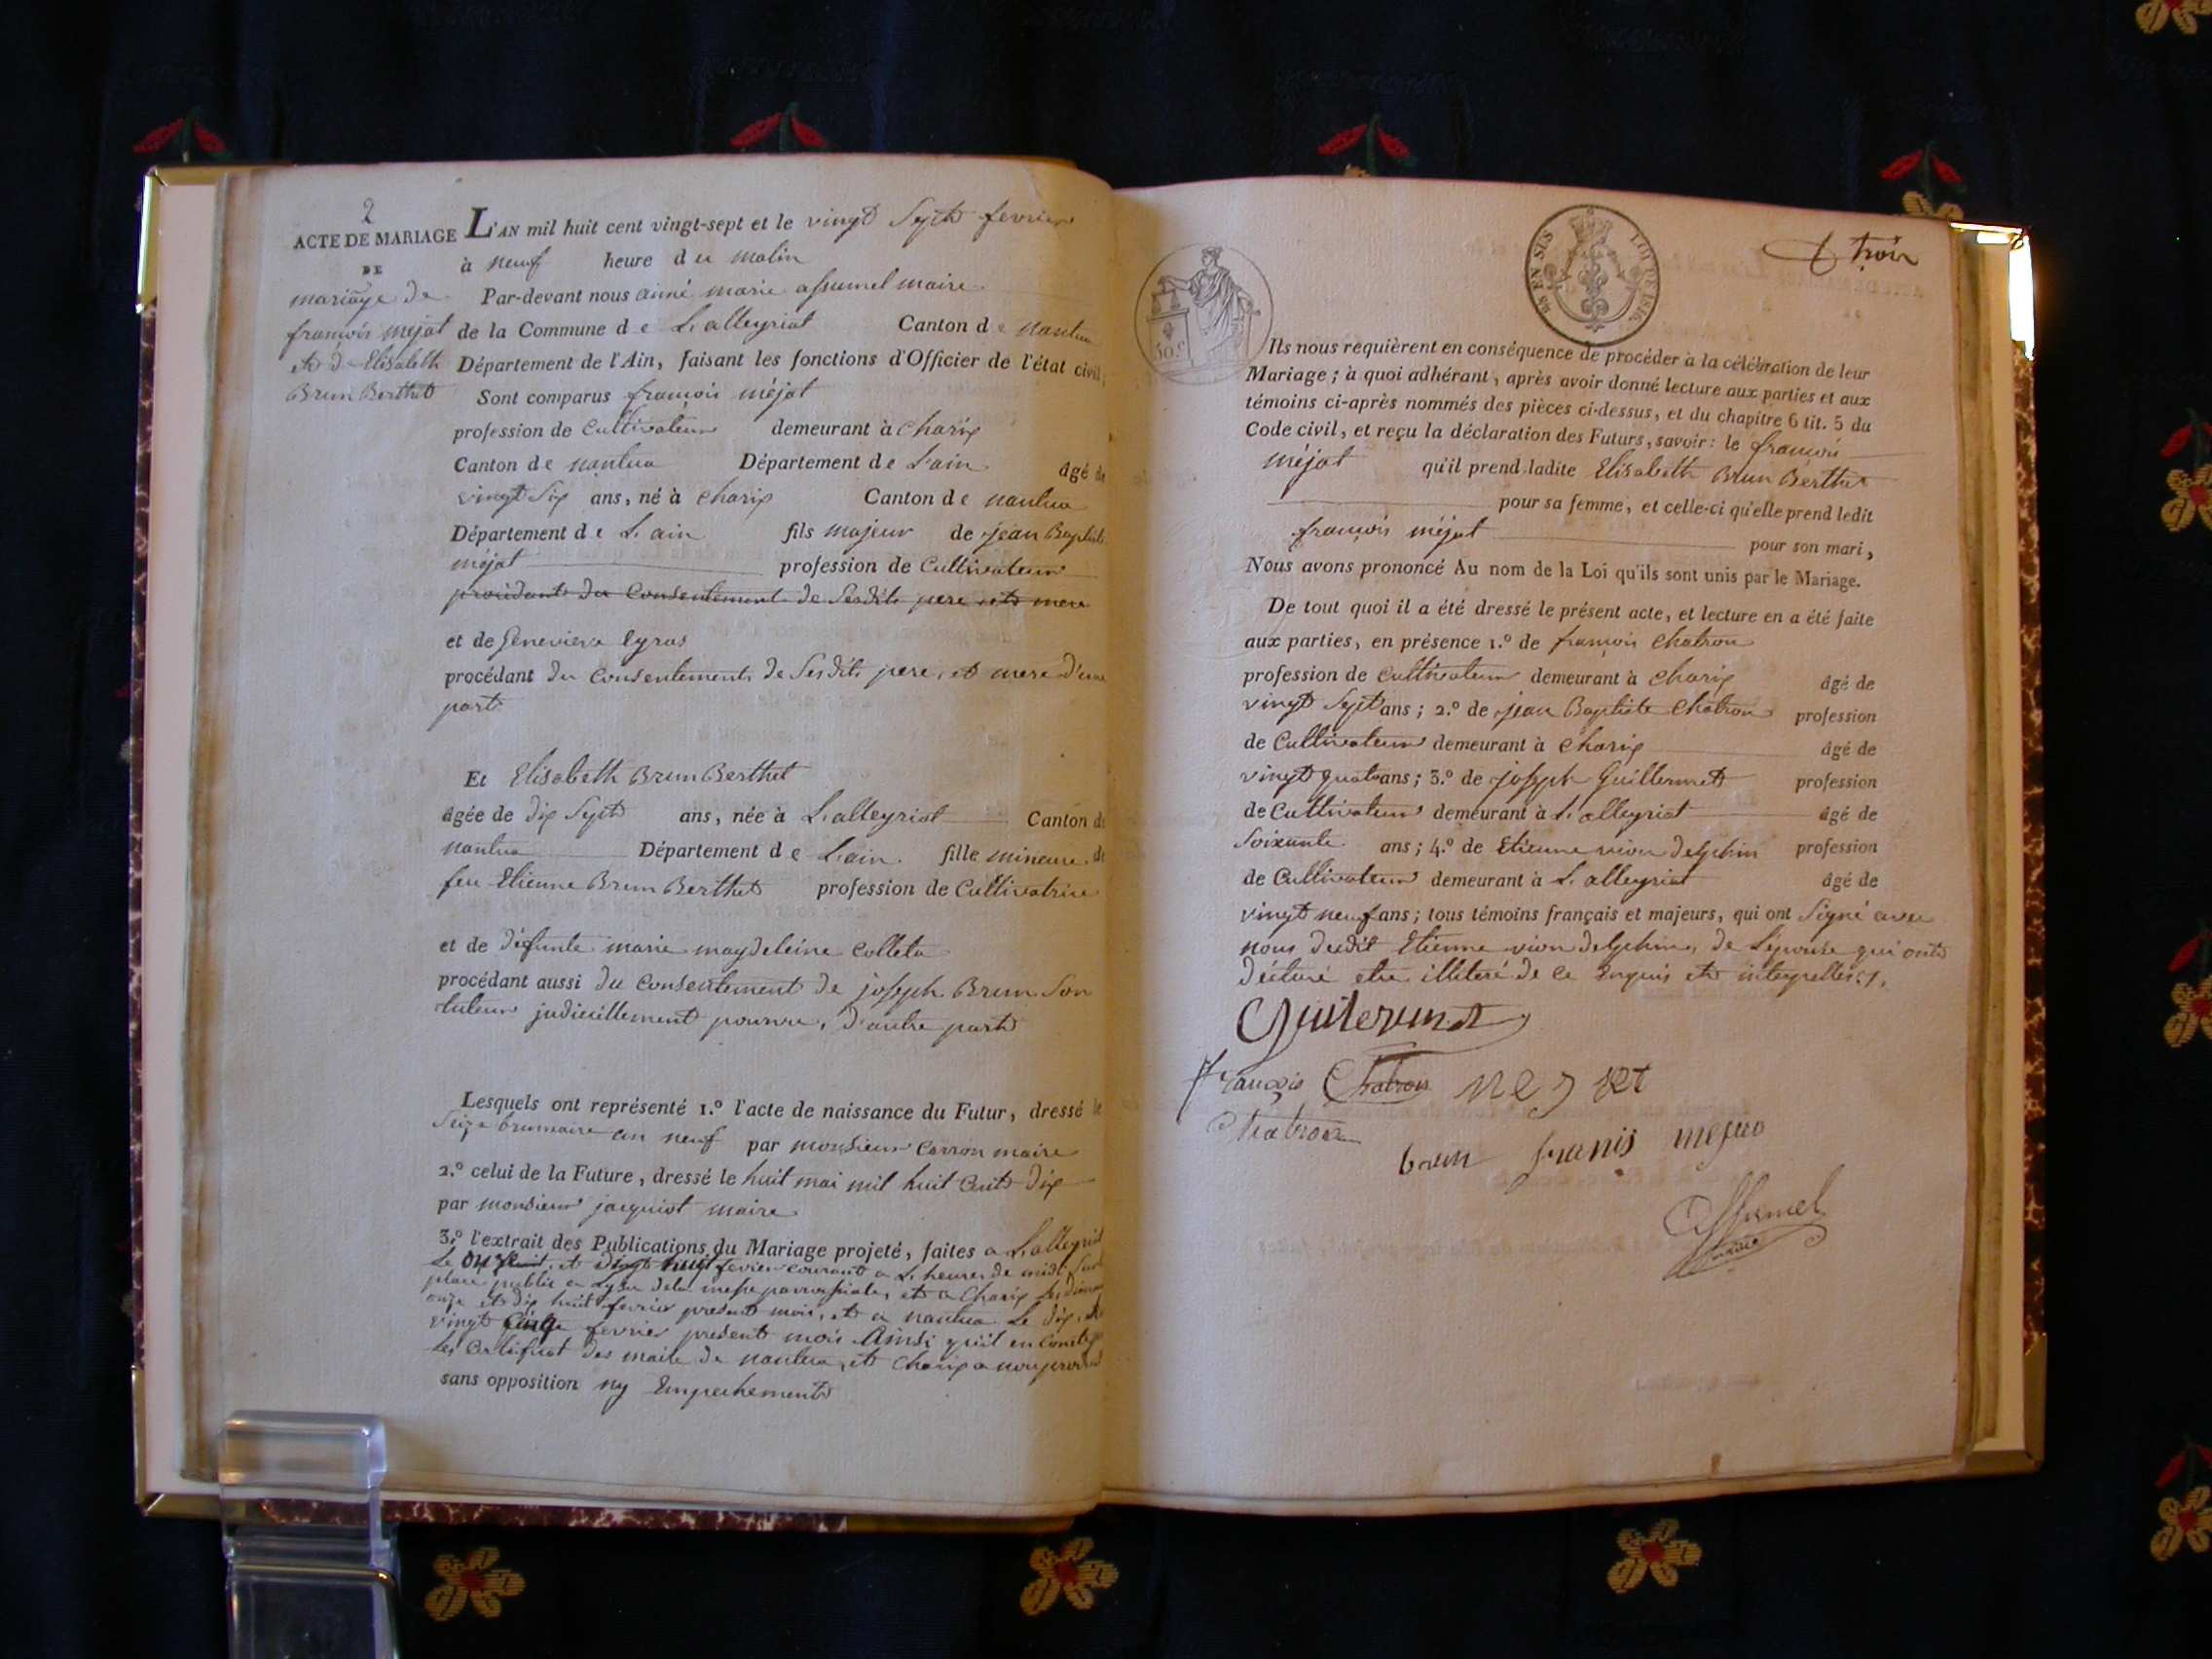 2
ACTE DE MARIAGE
DE
mariage de
françois mejat
et d Elisabeth
Brun Berthet
L'AN mil huit cent vingt-sept et le vingt Sept fevrier
à neuf heure du matin
Par-devant nous aimé marie assumel maire
de la Commune de Lalleyriat Canton de nantua
Département de l'Ain, faisant les fonctions d'Officier de l'état civil,
Sont comparus françois méjat
profession de Cultivateur demeurant à charix
Canton de nantua Département de L'ain âgé de
vingt Six ans, né à charix Canton de nantua
Département de L'ain fils majeur de jean Baptiste
méjat profession de Cultivateur
procédant du Consentement de Sesdits pere et mere
et de Genevieve
procédant du Consentement de Sesdits pere, et mere d'une
part
Et Elisabeth Brun Berthet
âgée de dix Sept ans, née à Lalleyriat Canton de
nantua Département de L'ain fille mineure de
feu Etienne Brun Berthet profession de Cultivatrice
et de défunte marie magdeleine Colleta
procédant aussi du Consentement de joseph Brun Son
tuteur judiciellement pourvu, d'autre part
Lesquels ont représenté 1.º l'acte de naissance du Futur, dressé le
Seize brumaire an neuf par monsieur Carron maire
2.º celui de la Future, dressé le huit mai mil huit Cent dix
par monsieur jacquiot maire
3.º l'extrait des Publications du Mariage projeté, faites a Lalleyriat
Le onze et fevrier courant a L heure de midi
place public a de la messe parroissiale, et a Charix les
onze et dix huit fevrier present mois, et a nantua Le dix, et
vingt Cinq fevrier present mois Ainsi qu'il en
Les Certificat des maire de nantua, et Charix a nous
sans opposition ny Empechement
50.c
trois
Ils nous requièrent en conséquence de procéder à la célébration de leur
Mariage; à quoi adhérant, après avoir donné lecture aux parties et aux
témoins ci-après nommés des pièces ci-dessus, et du chapitre 6 tit. 5 du
Code civil, et reçu la déclaration des Futurs, savoir: le françois
méjat qu'il prend ladite Elisabeth Brun Berthet
pour sa femme, et celle-ci qu'elle prend ledit
françois méjat pour son mari,
Nous avons prononcé Au nom de la Loi qu'ils sont unis par le Mariage.
De tout quoi il a été dressé le présent acte, et lecture en a été faite
aux parties, en présence 1.º de françois Chatron
profession de Cultivateur demeurant à charix âgé de
vingt Sept ans; 2.º de jean Baptiste Chatron profession
de Cultivateur demeurant à Charix âgé de
vingt quatre ans; 3.º de joseph Guillermet profession
de Cultivateur demeurant à Lalleyriat âgé de
Soixante ans; 4.º de Etienne vion delphin profession
de Cultivateur demeurant à Lalleyriat âgé de
vingt neuf ans; tous témoins français et majeurs, qui ont Signé avec
nous dudit Etienne vion delphin, de Lepouse qui ont
déclaré etre illiteré de ce Enquis et interpellés
Guilermet
françois Chatron mejat
Chatron
brun franis mejat
Assumel
maire